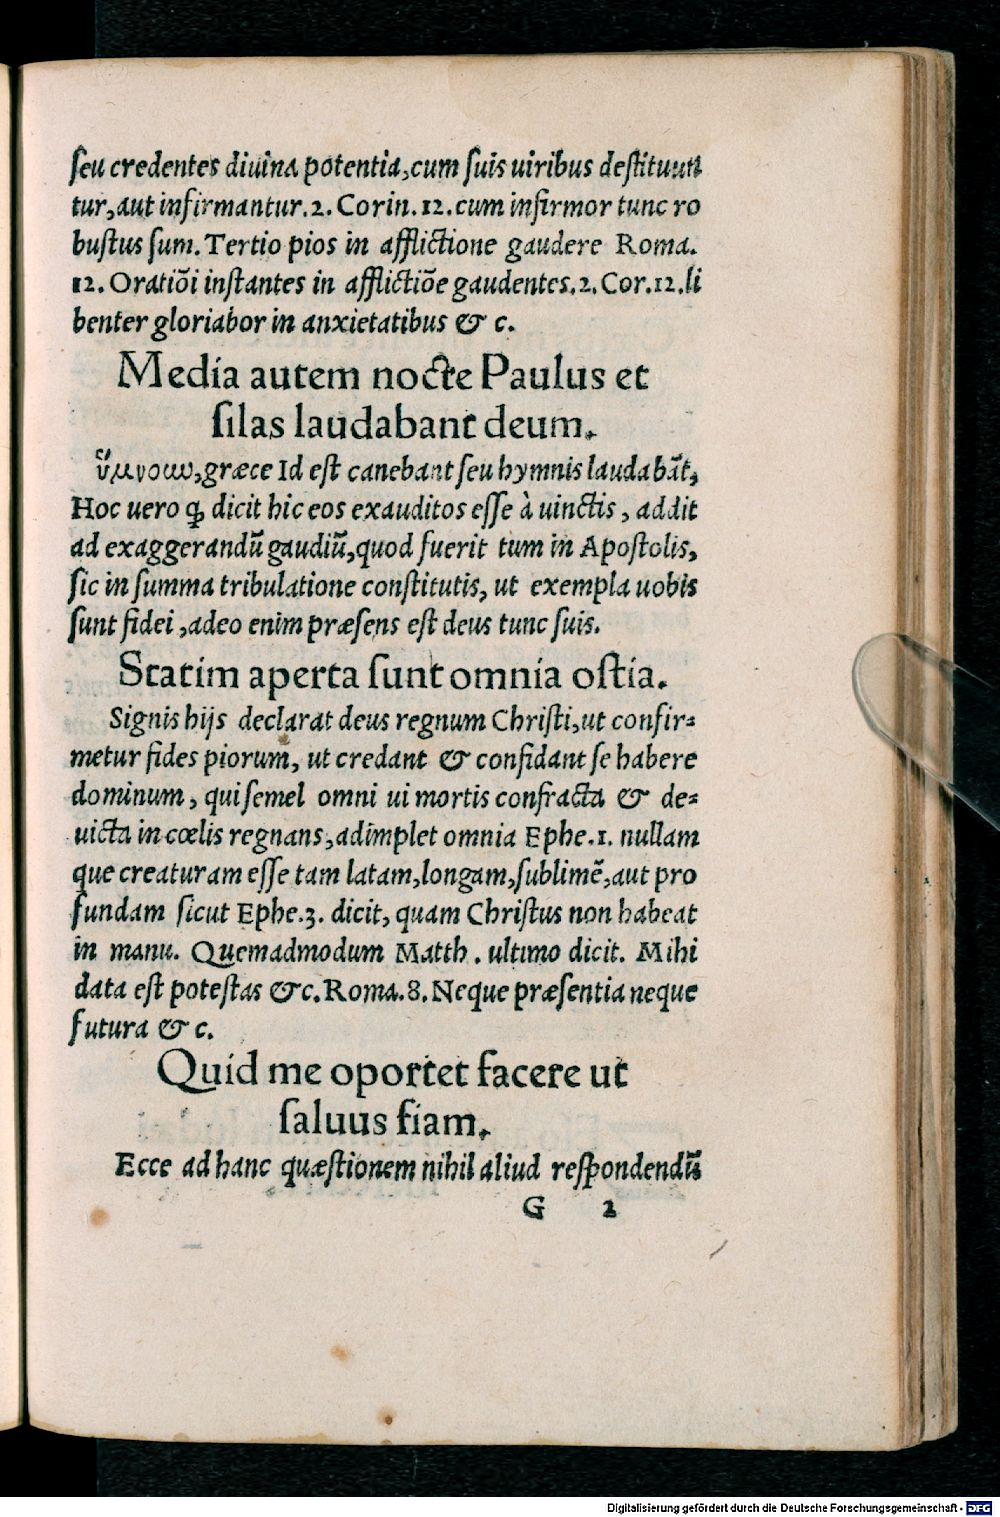 ſeu credentes diuina potentia,cum ſuis uiribus deſtituun
tur,aut infirmantur.2. Corin. 12.cum infirmor tunc ro
buſtus ſum. Tertio pios in afflictione gaudere Roma.
12. Oratiōi inſtantes in afflictiōe gaudentes.2. Cor.12.li
benter gloriabor in anxietatibus & c.
Media autem nocte Paulus et
ſilas laudabant deum.
ὕμνοων,græce Id eſt canebant ſeu hymnis laudabāt,
Hoc uero ꝙ dicit hic eos exauditos eſſe à uinctis, addit
ad exaggerandū gaudiū,quod fuerit tum in Apoſtolis,
ſic in ſumma tribulatione conſtitutis, ut exempla uobis
ſunt fidei ,adeo enim præſens eſt deus tunc ſuis.
Statim aperta ſunt omnia oſtia.
Signis hijs declarat deus regnum Chriſti,ut confir⸗
metur fides piorum, ut credant & confidant ſe habere
dominum, qui ſemel omni ui mortis confracta & de⸗
uicta in cœlis regnans,adimplet omnia Ephe.1. nullam
que creaturam eſſe tam latam,longam,ſublimē,aut pro
fundam ſicut Ephe.3. dicit, quam Chriſtus non habeat
in manu. Quemadmodum Matth. ultimo dicit. Mihi
data eſt poteſtas &c. Roma.8. Neque præſentia neque
futura & c.
Quid me oportet facere ut
ſaluus fiam.
Ecce ad hanc quæſtionem nihil aliud reſpondendū
G 2
Digitalisierung gefördert durch die Deutsche Forschungsgemeinschaft - DFG